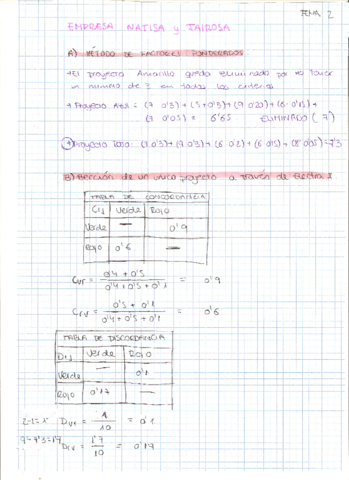 TEMA 2
EMPRESA NATISA y TAIROSA
A) MÉTODO DE FACTORES PONDERADOS
El proyecto Amarillo queda eliminado por no tener
un mínimo de 3 en todos los criterios
Proyecto Azul = (7 0'3) + (5 + 0'3) + (9 0'20) + (6 · 0'15) +
(7 0'05) = 6'65 ELIMINADO (7)
Proyecto Rojo: (7 0'3) + (7 0'3) + (6 0'2) + (6 0'15) + (8 0'05) = 7'3
B) Elección de un único proyecto a través de Electra I.
TABLA DE CONCORDANCIA
Cij Verde Rojo
Verde — 0'9
Rojo 0'6 —
Cvr = 0'4 + 0'5 / 0'4 + 0'5 + 0'1 = 0'9
Crv = 0'5 + 0'1 / 0'4 + 0'5 + 0'1 = 0'6
TABLA DE DISCORDANCIA
Dij Verde Rojo
Verde — 0'1
Rojo 0'17 —
2-1=1 Dvr = 1 / 10 = 0'1
Drv = 1'7 / 10 = 0'17